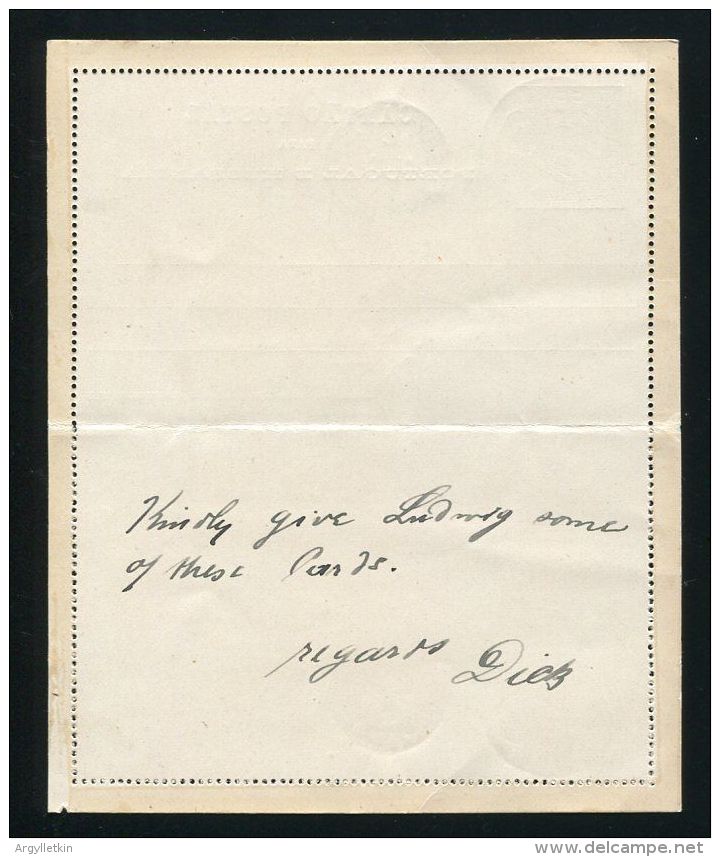 Kindly give Ludwig some
of these Cards.
regards Dick
Argylletkin
www.delcampe.net